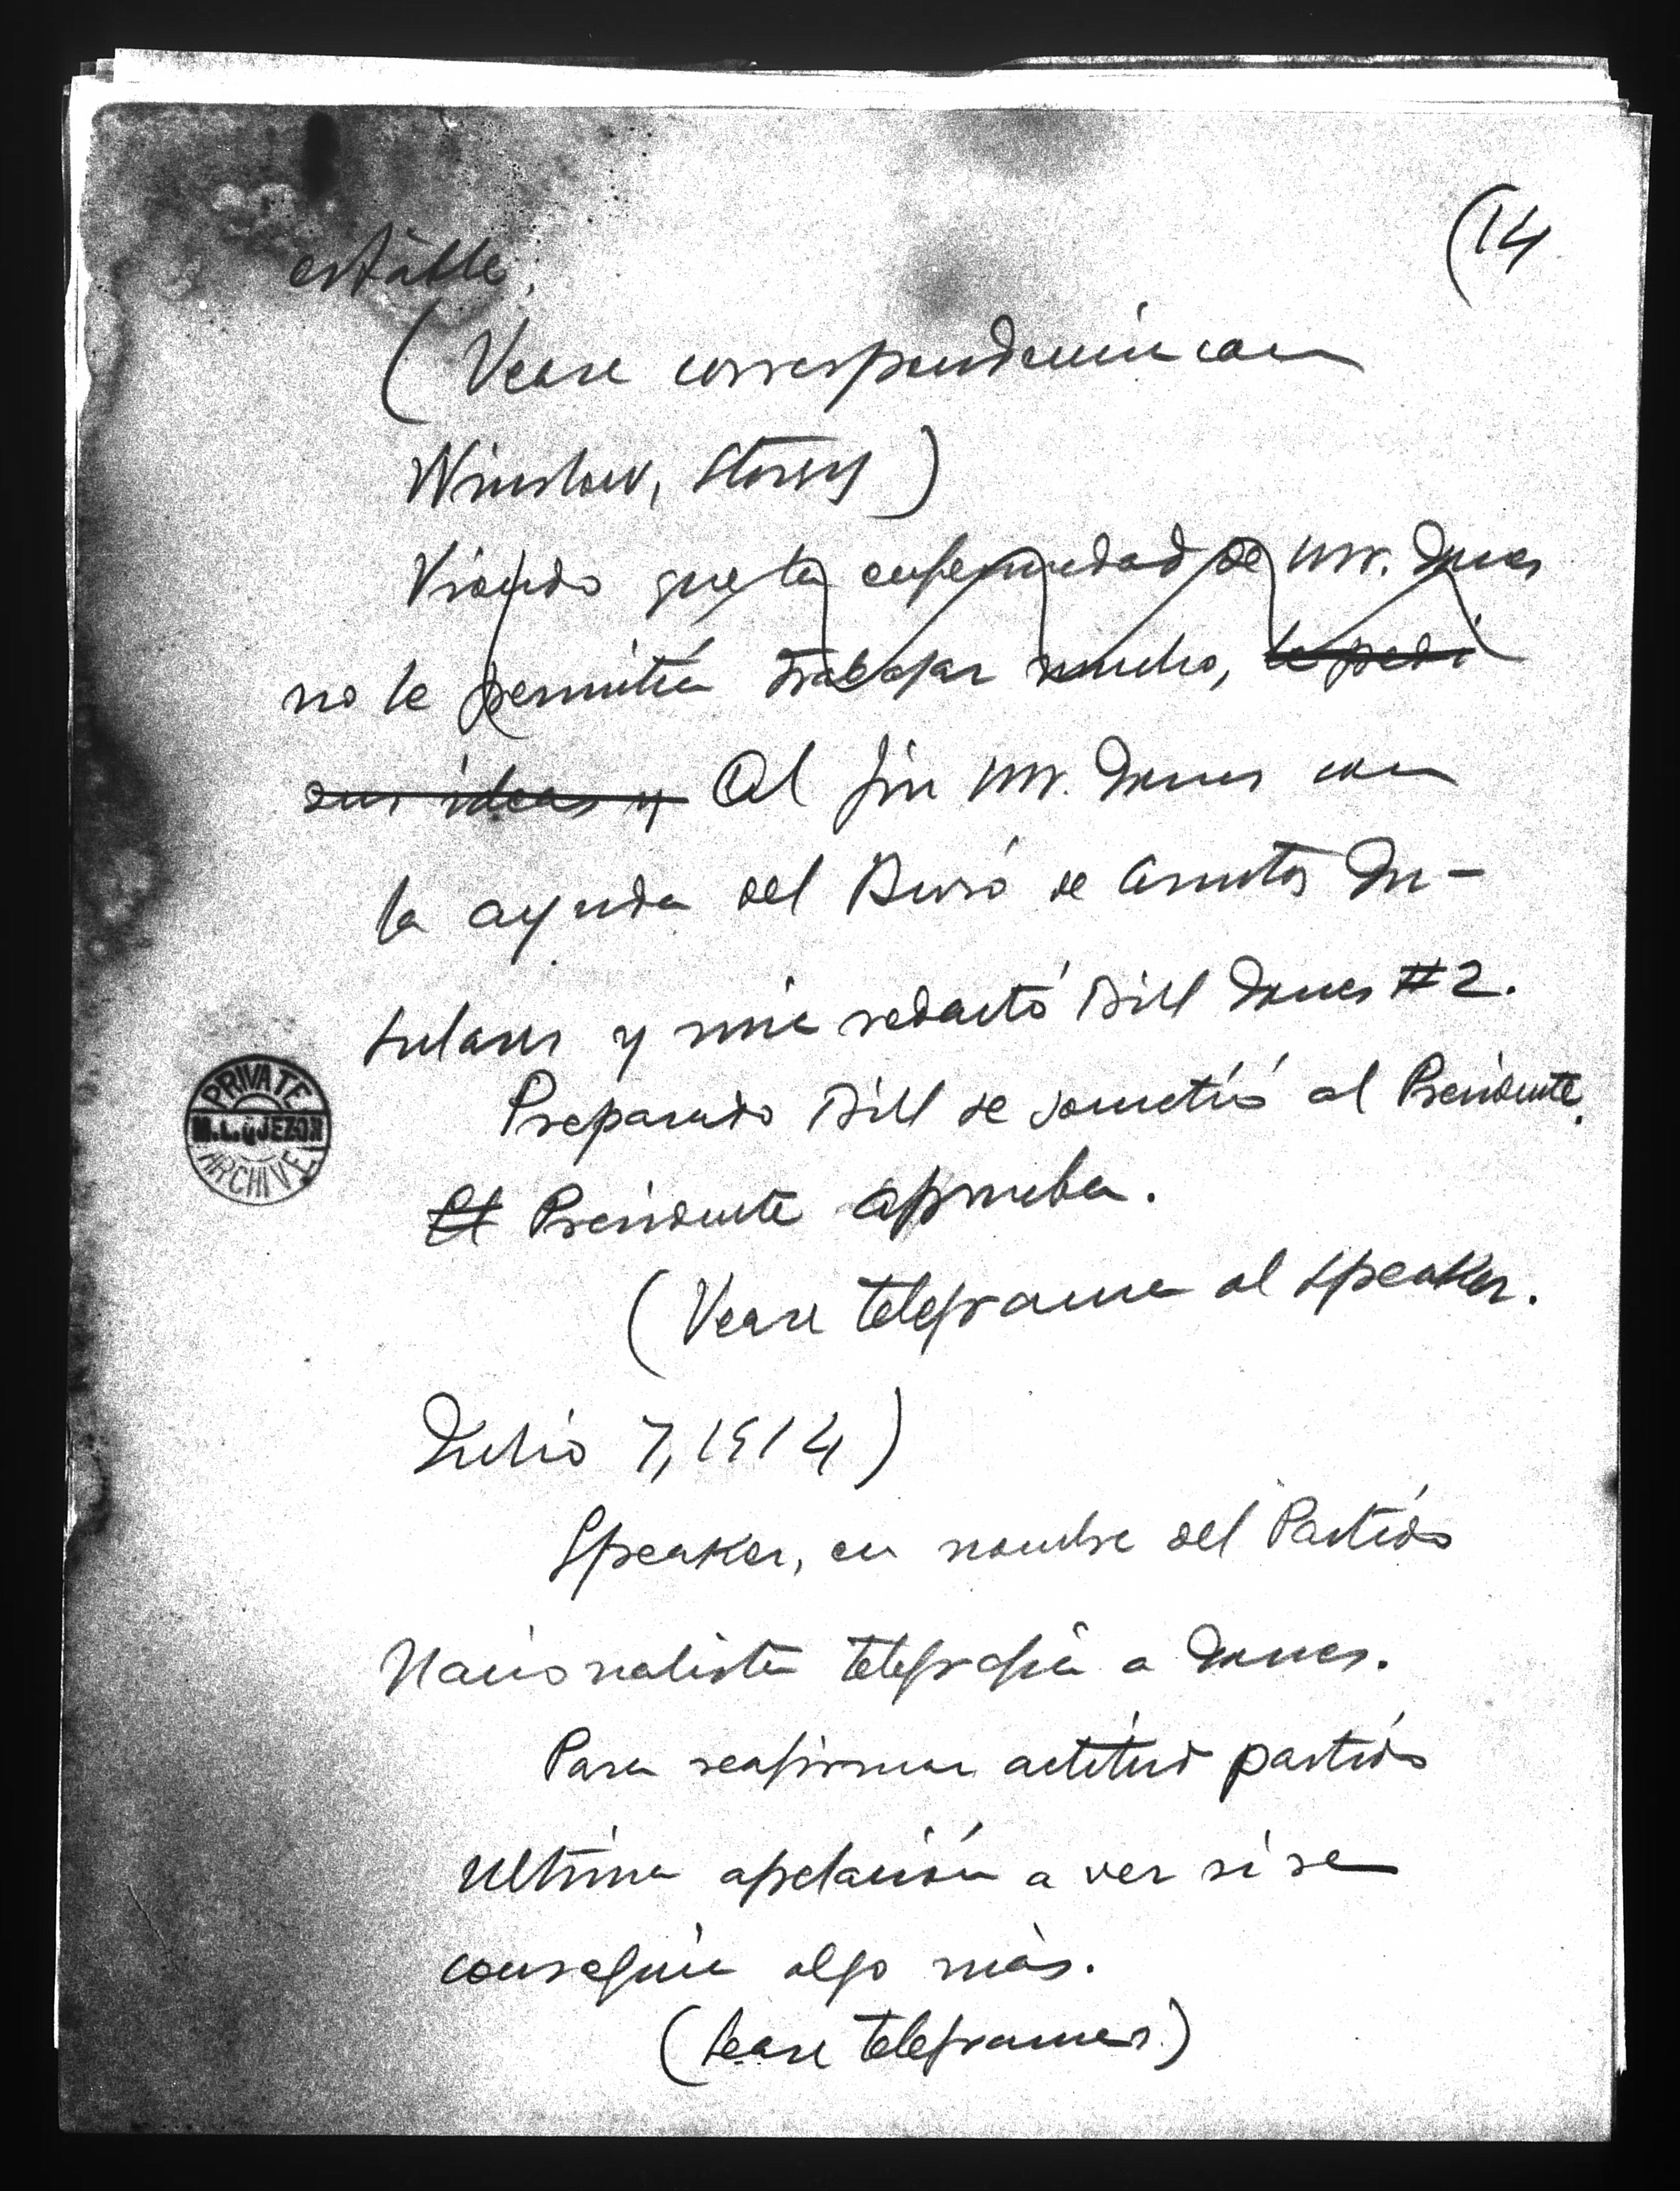 (14
estable.
(Vease correspondencia con
Winslow, Storey)
Viendo que la enfermedad de Mr. Jones
no le permitía trabajar mucho, le pedí
sus ideas y Al fin Mr. Jones con
la ayuda del Buró de Asuntos In-
sulares y mía redactó Bill Jones #2.
Preparado Bill se sometió al Presidente.
El Presidente aprueba.
(Vease telegrama al Speaker.
Julio 7, 1914)
Speaker, en nombre del Partido
Nacionalista telegrafía a Jones.
Para reafirmar actitud partido
Ultima apelación a ver si se
conseguía algo más.
(Lease telegramas)
PRIVATE
M.L. QUEZON
ARCHIVE